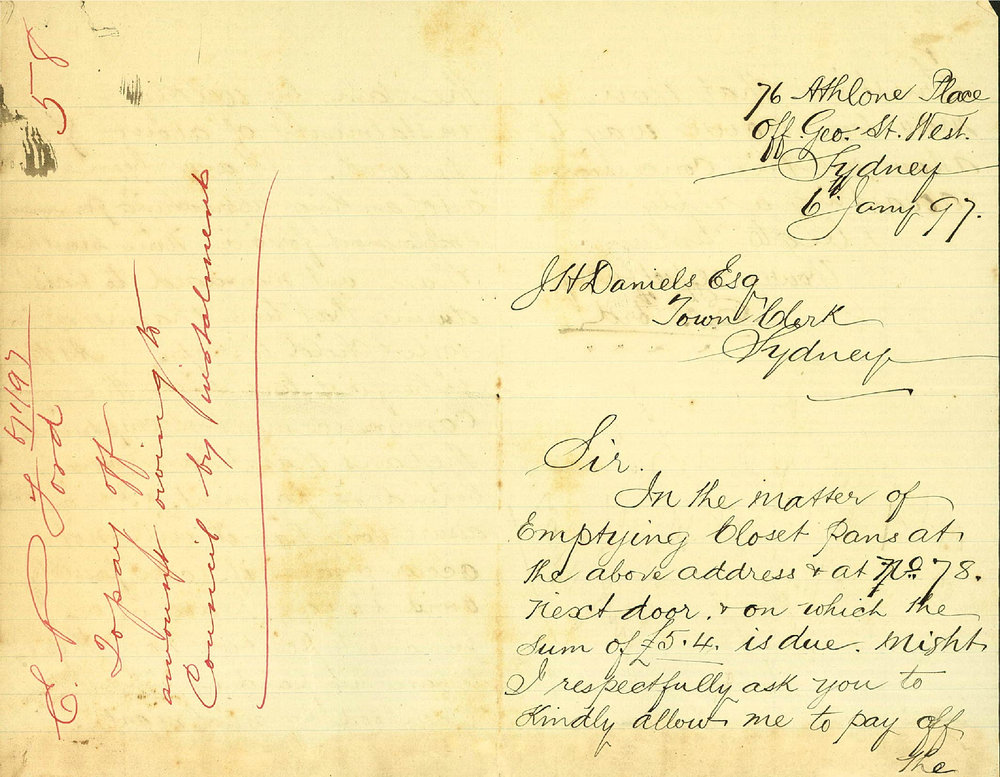 76 Athlone Place
Off. Geo. St. West.
Sydney
6th Jany 97.
J H Daniels Esq
Town Clerk
Sydney
Sir.
In the matter of
Emptying Closet Pans at
the above address & at No. 78.
next door. & on which the
sum of £5.4. is due. Might
I respectfully ask you to
Kindly allow me to pay off
the
58
E. P. Ford
6/1/97
To pay off
amount owing to
Council by instalment